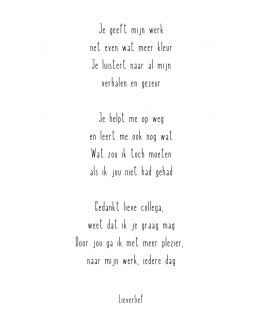 Je geeft mijn werk
net even wat meer kleur
Je luistert naar al mijn
verhalen en gezeur
Je helpt me op weg
en leert me ook nog wat
Wat zou ik toch moeten
als ik jou niet had gehad
Bedankt lieve collega,
weet dat ik je graag mag
Door jou ga ik met meer plezier,
naar mijn werk, iedere dag
Lieverlief